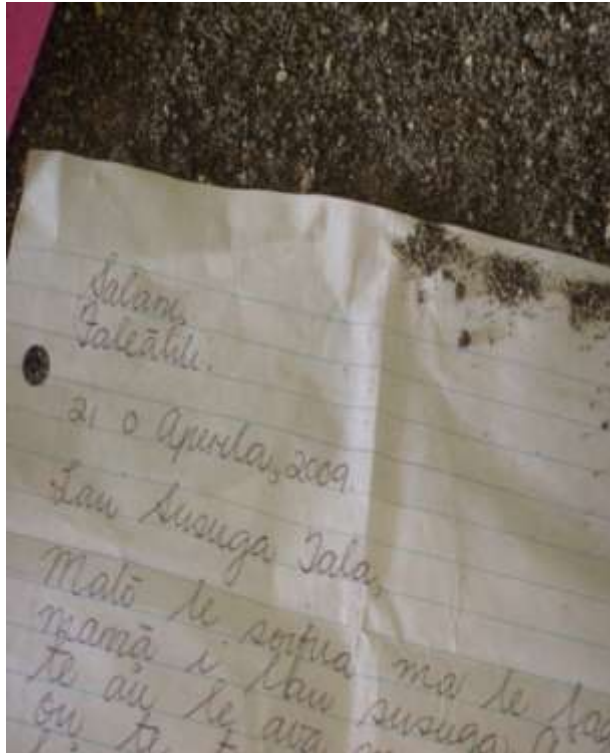 Salani,
Faleālili.
21 o Aperila, 2009.
Lau Susuga Tala,
Malō le soifua ma le
mamā i lau susuga
Te au le ava
ou te